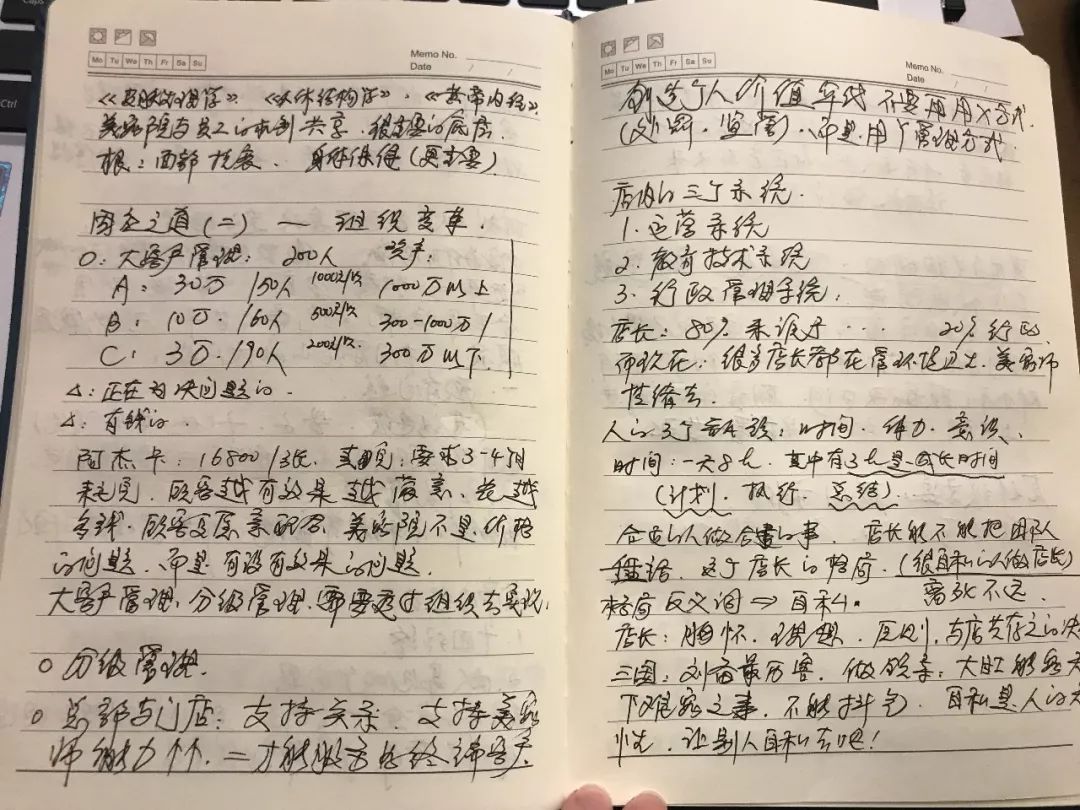 Caps
Ctrl
Mo Tu We Th Fr Sa Su
Memo No.
Date / /
《皮肤管理学》.《人体结构学》.《黄帝内经》.
美容院与员工的 共享.很重要的底层
根:面部 身体保健(更重要)
固在之道(二) — 组织变革.
O:大客户管理: 200人 资产:
A: 30万 /50人 1000元/次 1000万以上
B: 10万./60人 500元/次 300-1000万/
C: 3万./90人 200元/次. 300万以下
△:正在为 问题的.
△:有钱的.
阿杰卡:16800/3 . :要求3-4个月
见.顾客越有效果越满意、 越
多钱.顾客 要配合、美容院不是价格
的问题.而是有没有效果的问题.
大客户管理、分级管理、需要透过组织去实现.
○ 分级管理.
○ 总部与门店:支持关系. 支持美容
师能力 . = 才能服务好终端客户.
Mo Tu We Th Fr Sa Su
Memo No.
Date / /
创造个人价值 不要用用X方式.
( 、监 )、而是用Y管理方式.
店内的三个系统.
1.运营系统
2.教育技术系统
3.行政管理系统:
店长:80% 来 于 ... 20%行政
而现在:很多店长都在管环境卫生、美容师
情绪去.
人的3个 :时间、体力、意识、
时间:一天8h.其中有3h是 时间
(计划、执行、总结).
合适的人做合适的事. 店长能不能把团队
.这个店长的格局.(很自私的人做店长)
格局反义词 ⇒ 自私. 离死不远.
店长:胸怀、理想、原则、与店共存之的决
三国:刘备最厉害. 做 .大肚能容天
下难容之事.不能抖气. 自私是人的天
性.让别人自私去吧!